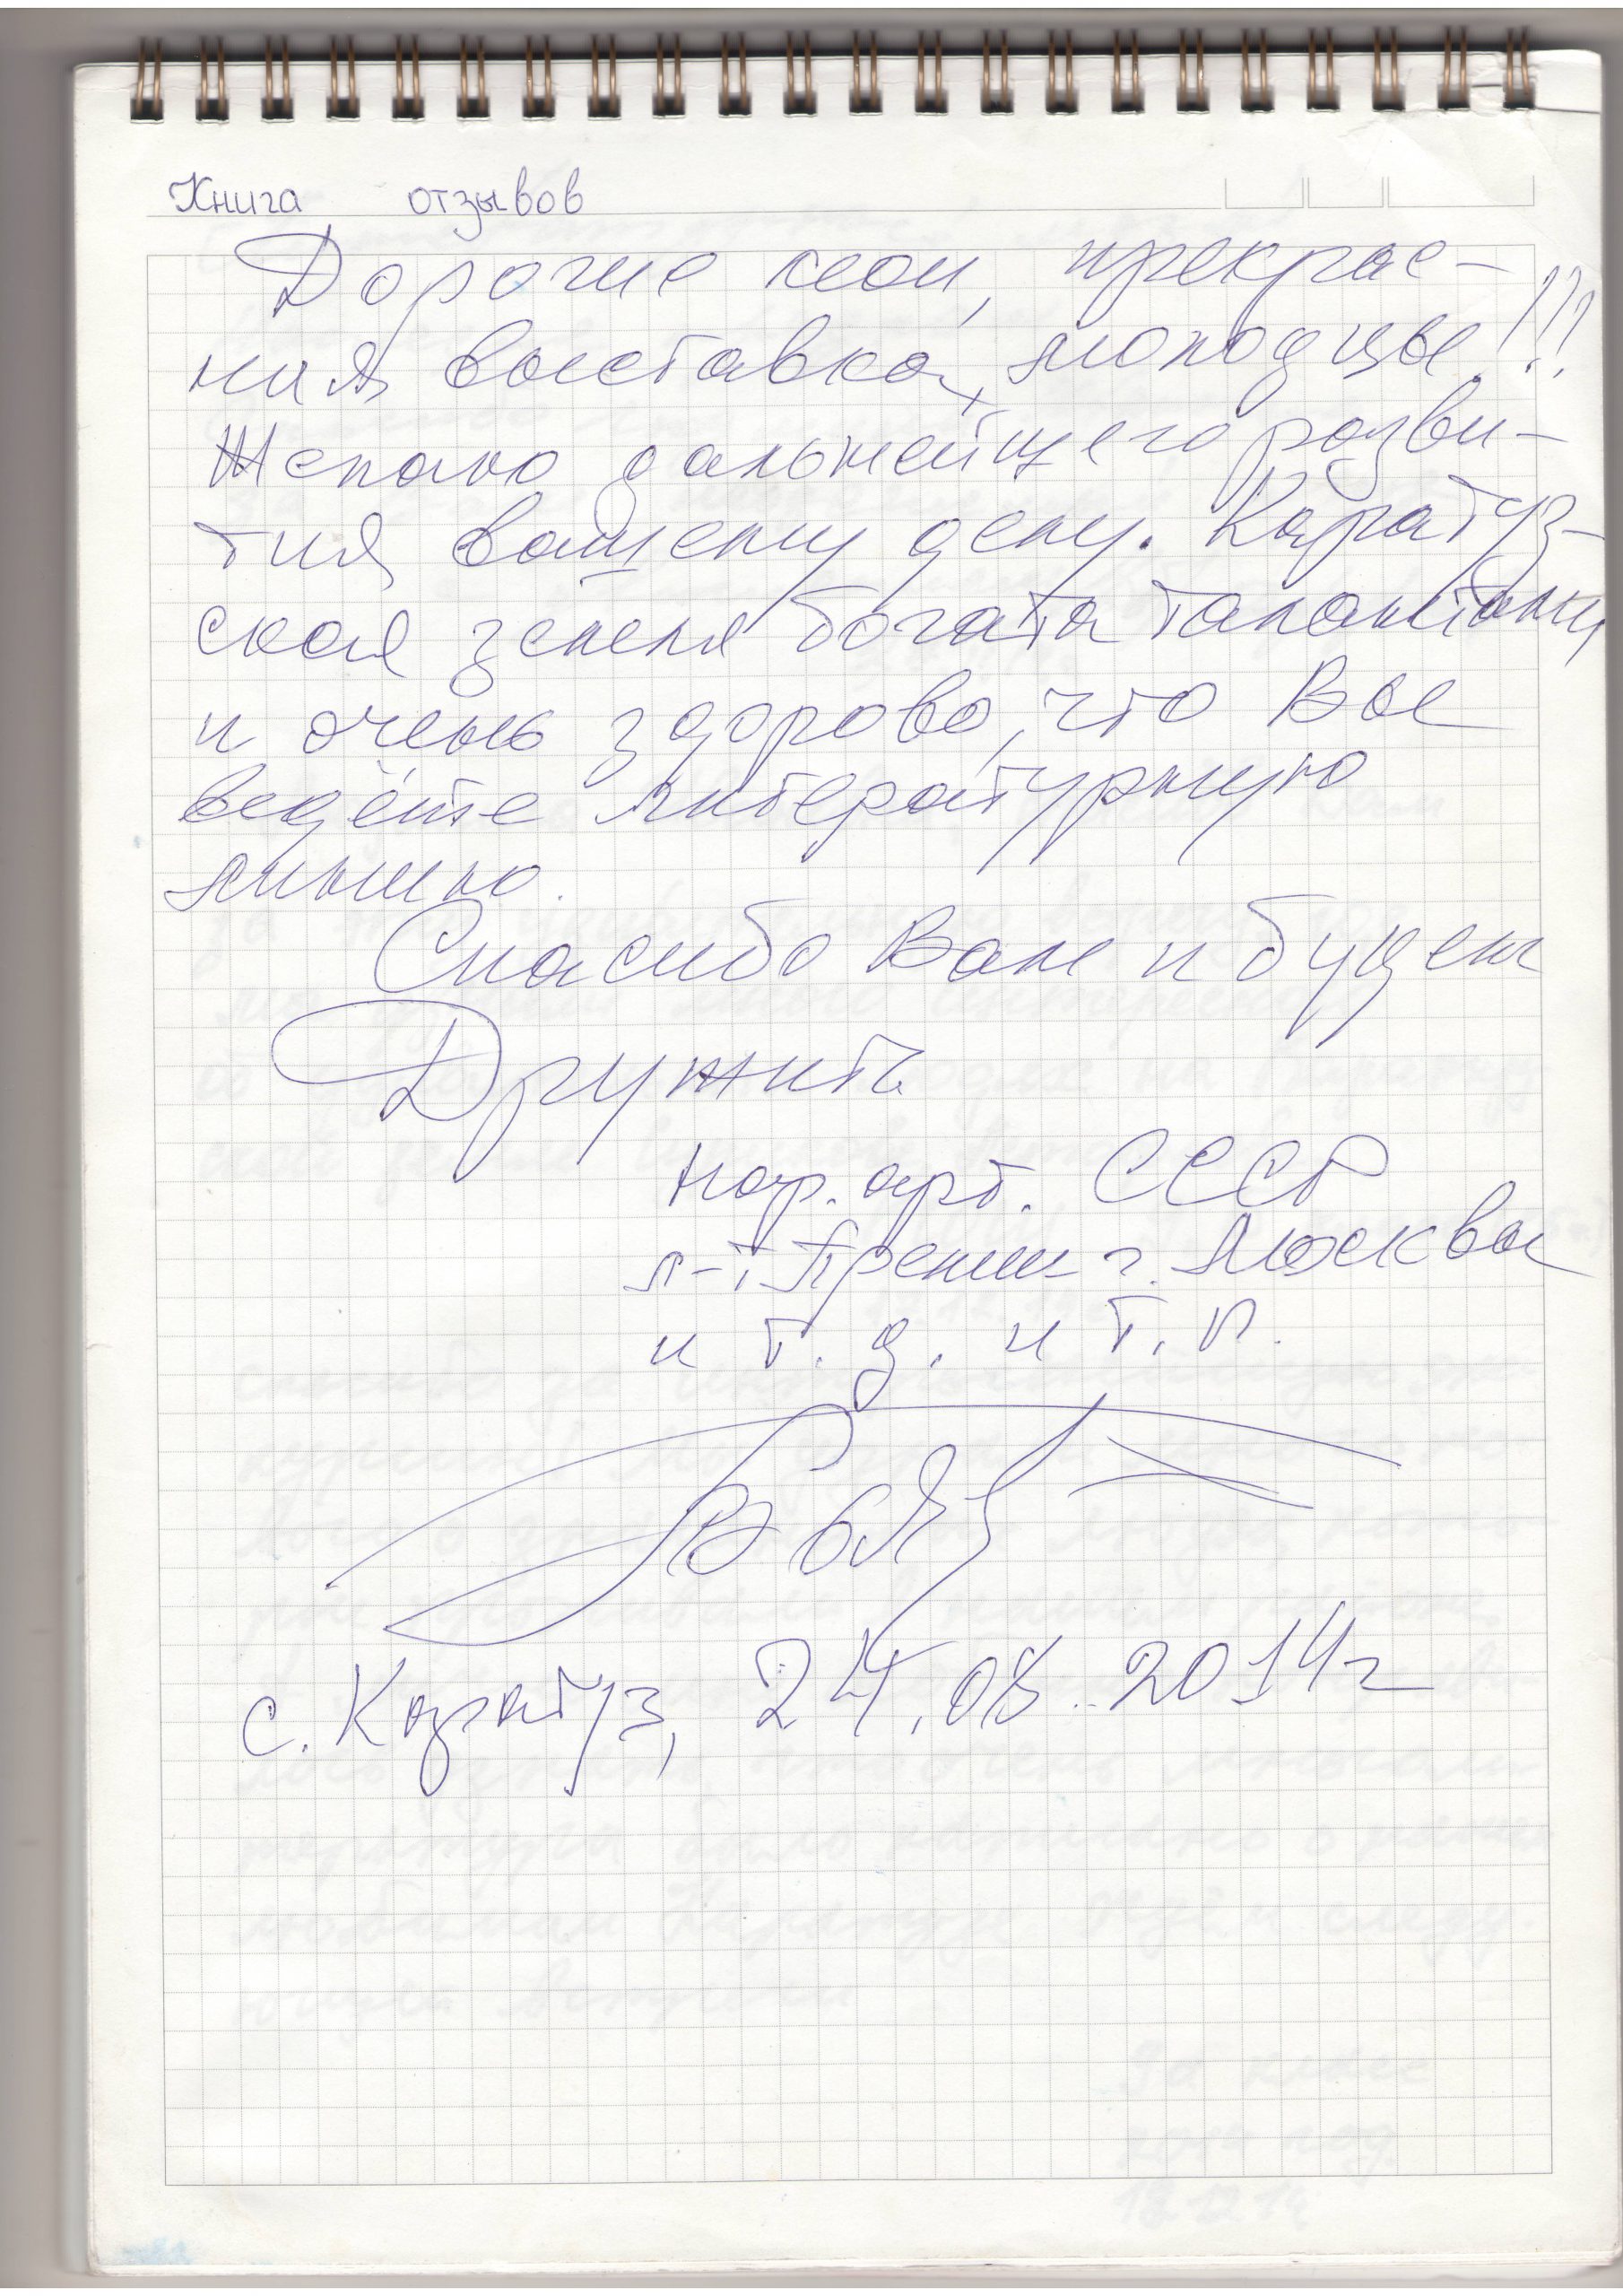 Книга отзывов
Дорогие мои, прекрас-
ная выставка, молодцы!!!
Желаю дальнейшего разви-
тия вашему делу. Каратуз-
ская земля богата талантами
и очень здорово, что Вы
ведёте литературную
линию.
Спасибо Вам и будем
Дружить
Нар. арт. СССР
л-т Премии г. Москвы
и т. д. и т. п.
с. Каратуз, 24.08.2014г